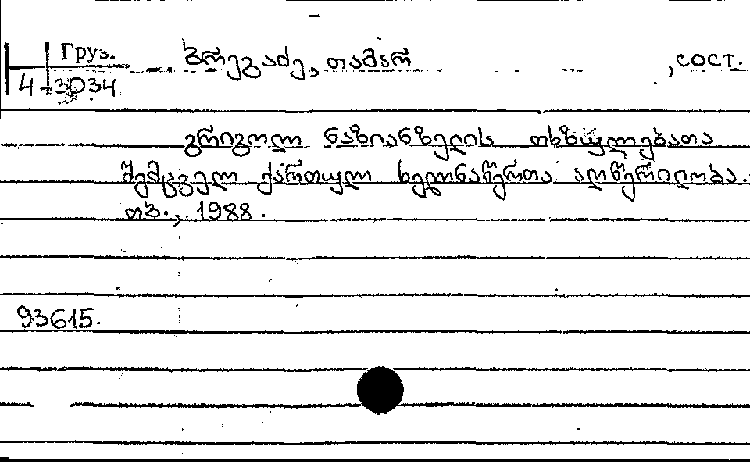 Груз. ბრეგაძე, თამარ , сост.
4-3034
გრიგოლ ნაზიანზელის თხზულებათა
შემცველ ქართულ ხელნაწერთა აღწერილობა.
თბ., 1988.
93615.